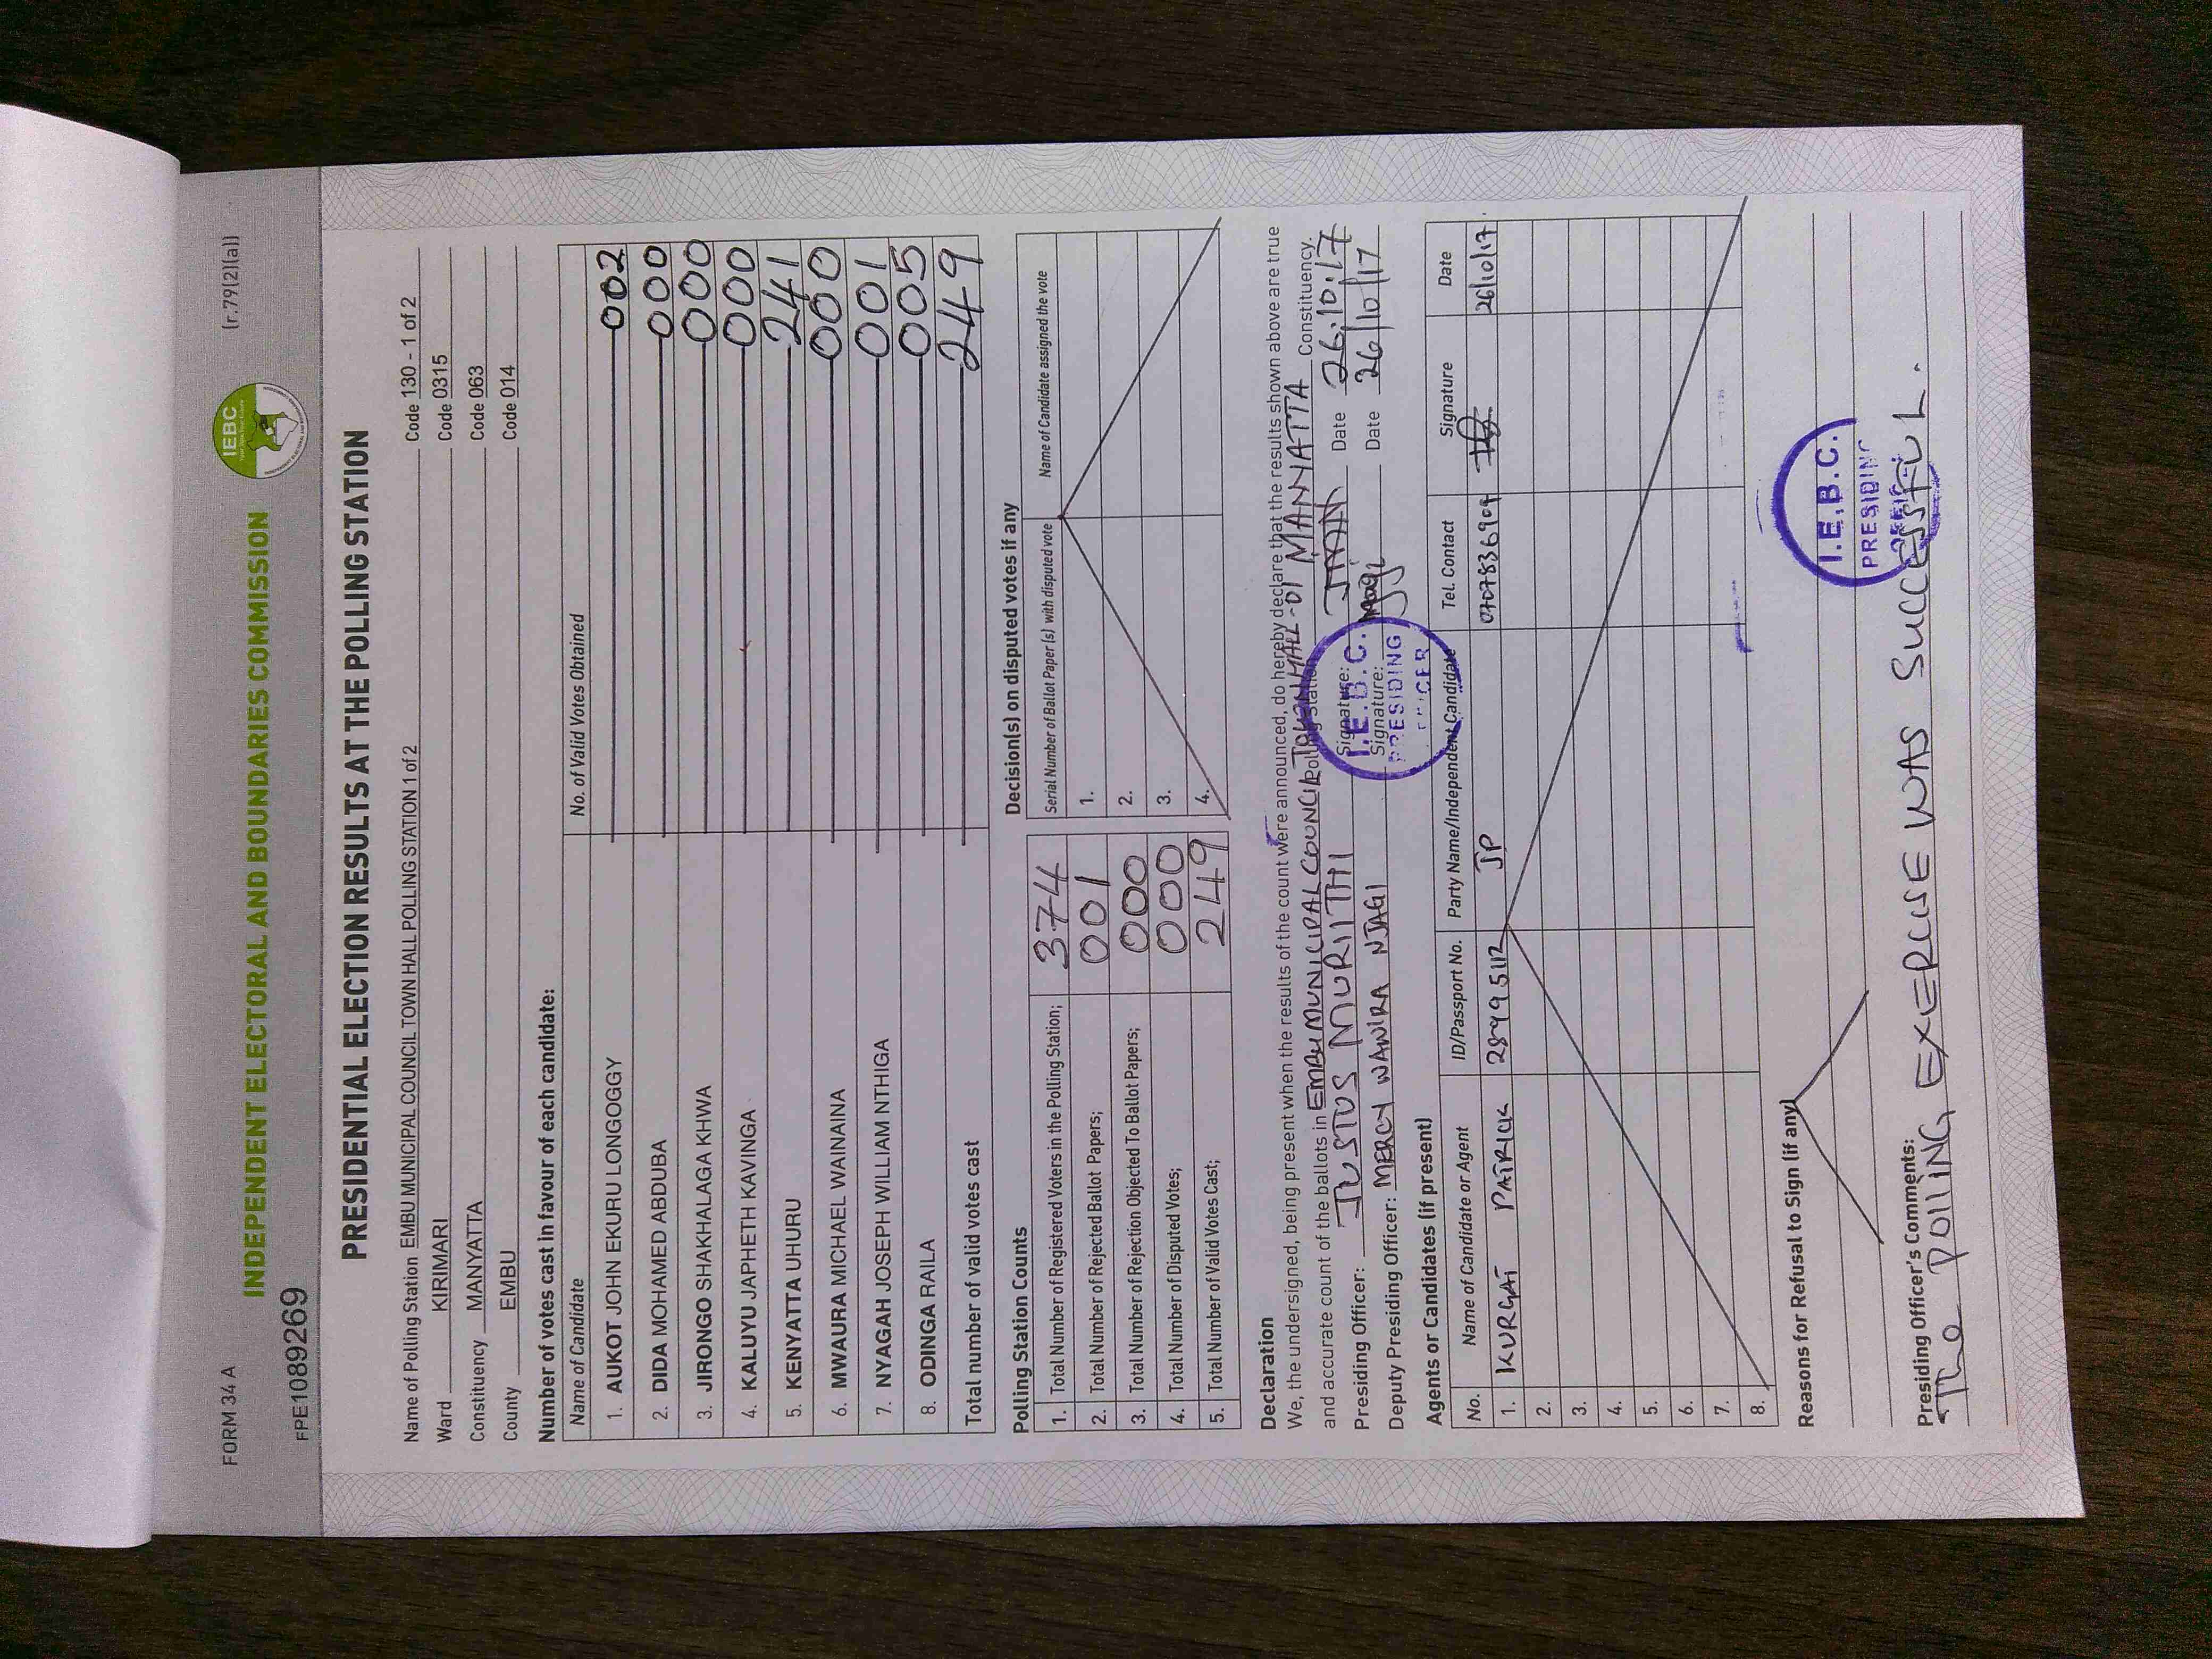 FORM 34 A
(r.79(2)(a))
IEBC
INDEPENDENT ELECTORAL AND BOUNDARIES COMMISSION
FPE1089269
PRESIDENTIAL ELECTION RESULTS AT THE POLLING STATION
Name of Polling Station EMBU MUNICIPAL COUNCIL TOWN HALL POLLING STATION 1 of 2 Code 130 - 1 of 2
Ward KIRIMARI Code 0315
Constituency MANYATTA Code 063
County EMBU Code 014
Number of votes cast in favour of each candidate:
Name of Candidate No. of Valid Votes Obtained
1. AUKOT JOHN EKURU LONGOGGY 002
2. DIDA MOHAMED ABDUBA 000
3. JIRONGO SHAKHALAGA KHWA 000
4. KALUYU JAPHETH KAVINGA 000
5. KENYATTA UHURU 241
6. MWAURA MICHAEL WAINAINA 000
7. NYAGAH JOSEPH WILLIAM NTHIGA 001
8. ODINGA RAILA 005
Total number of valid votes cast 249
Polling Station Counts
1. Total Number of Registered Voters in the Polling Station; 374
2. Total Number of Rejected Ballot Papers; 001
3. Total Number of Rejection Objected To Ballot Papers; 000
4. Total Number of Disputed Votes; 000
5. Total Number of Valid Votes Cast; 249
Decision(s) on disputed votes if any
Serial Number of Ballot Paper (s) with disputed vote Name of Candidate assigned the vote
1.
2.
3.
4.
Declaration
We, the undersigned, being present when the results of the count were announced, do hereby declare that the results shown above are true
and accurate count of the ballots in EMBU MUNICIPAL COUNCIL TOWN HALL-01 Polling Station MANYATTA Constituency.
Presiding Officer: JUSTUS MURIITHI Signature: Date 26.10.17
Deputy Presiding Officer: MERCY WAWIRA NJAGI Signature: Njagi Date 26/10/17
I.E.B.C.
PRESIDING
Agents or Candidates (if present)
No. Name of Candidate or Agent ID/Passport No. Party Name/Independent Candidate Tel. Contact Signature Date
1. KURGAT PATRICK 28995112 JP 0707836909 26/10/17.
2.
3.
4.
5.
6.
7.
8.
Reasons for Refusal to Sign (if any)
I.E.B.C.
PRESIDING
Presiding Officer's Comments:
The POLLING EXERCISE WAS SUCCESSFUL.